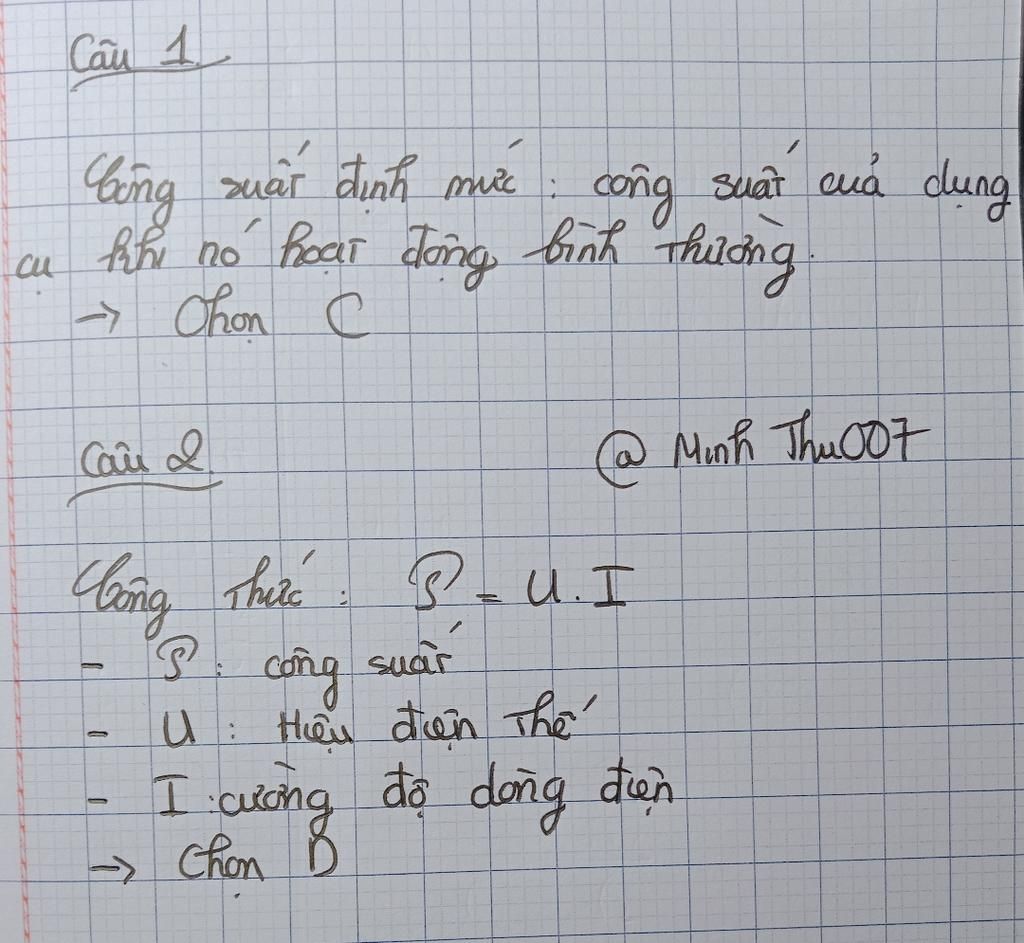 Câu 1
Công suất định mức : công suất của dụng
cụ khi nó hoạt động bình thường.
→ Chọn C
Câu 2
@ Minh Thu007
Công thức : P = U . I
- P : công suất
- U : Hiệu điện thế
- I : cường độ dòng điện
→ Chọn D